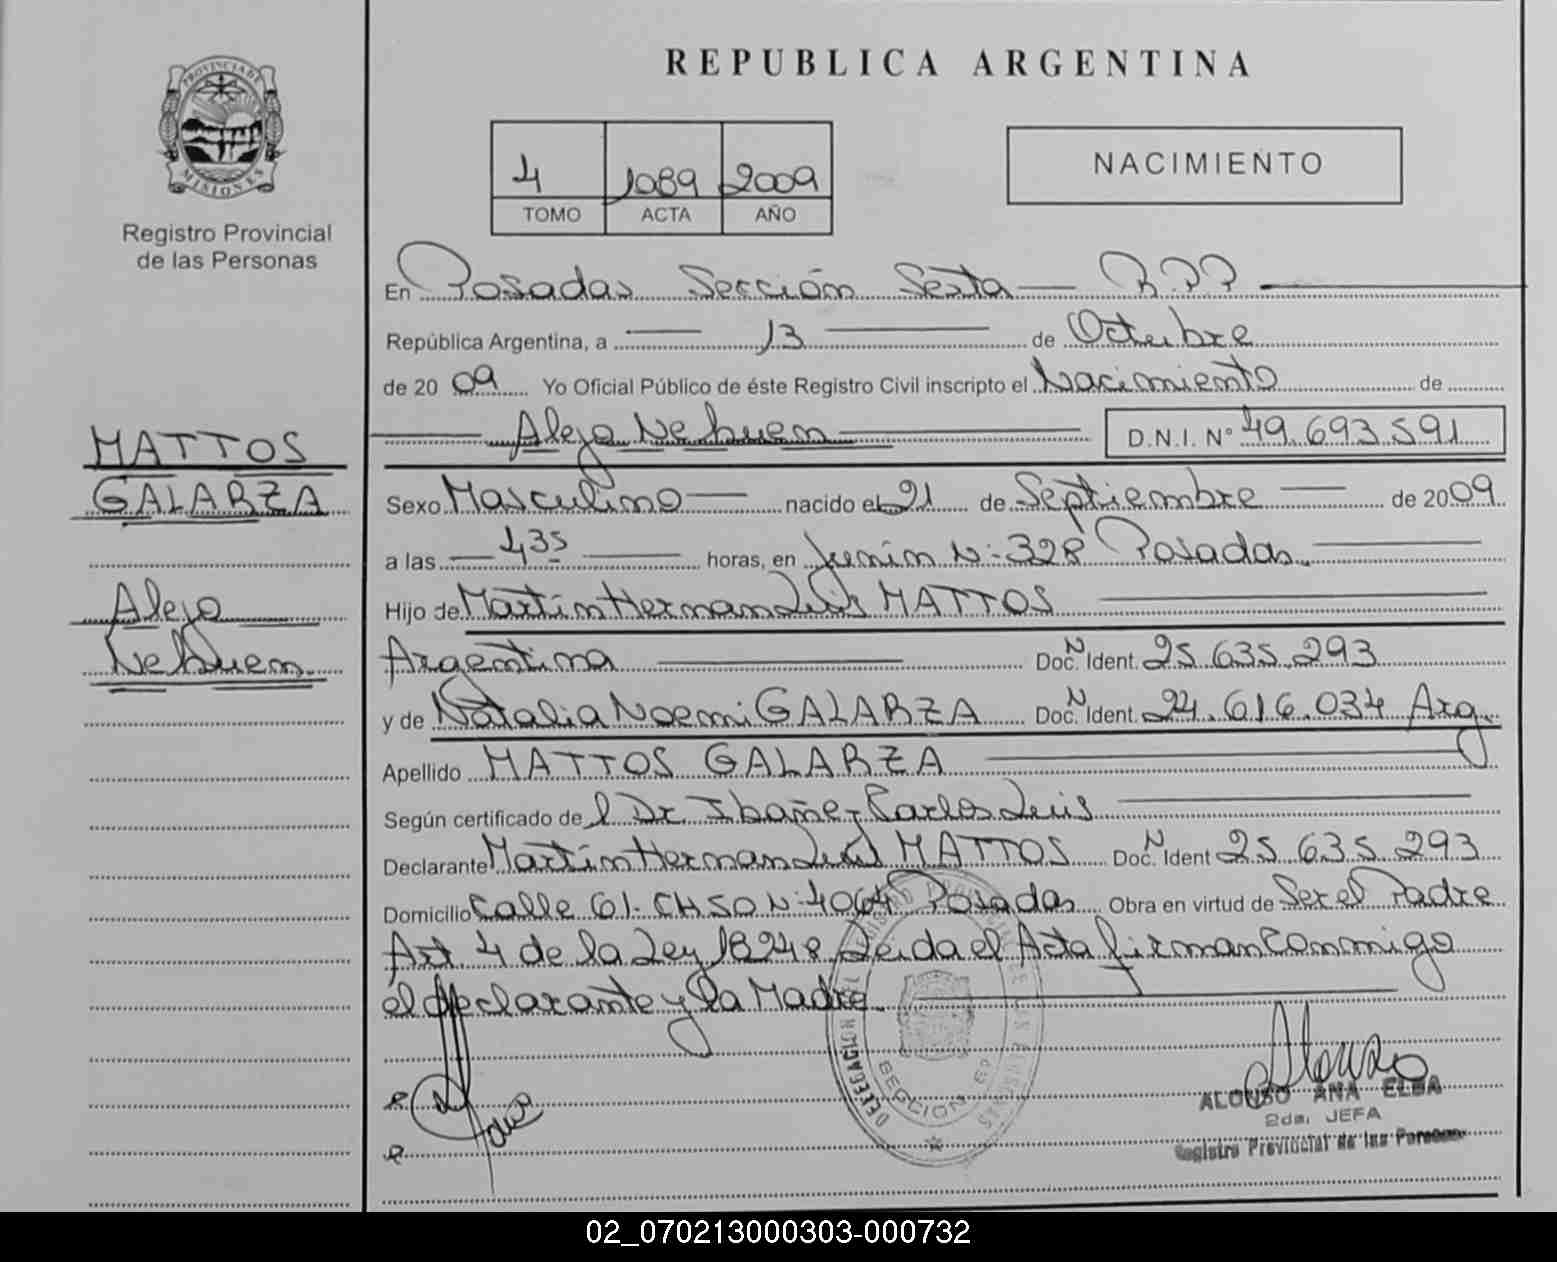 REPUBLICA ARGENTINA
PROVINCIA DE
MISIONES
Registro Provincial
de las Personas
4 1089 2009
TOMO ACTA AÑO
NACIMIENTO
En Posadas Sección Sexta R.P.P
República Argentina, a 13 de Octubre
de 20 09 Yo Oficial Público de éste Registro Civil inscripto el Nacimiento de
Alejo Nehuen D.N.I. N° 49.693.591
MATTOS
GALARZA
Alejo
Nehuen
Sexo Masculino nacido el 21 de Septiembre de 2009
a las 4 35 horas, en Junin N° 328 Posadas
Hijo de Martín Hernan Luis MATTOS
Argentina Doc. N Ident. 25.635.293
y de Natalia Noemi GALARZA Doc. N Ident. 24.616.034 Arg.
Apellido MATTOS GALARZA
Según certificado de l Dr. Ibañez Carlos Luis
Declarante Martín Hernan Luis MATTOS Doc. N Ident 25.635.293
Domicilio Calle 61. CH 50 N° 4064 Posadas Obra en virtud de Ser el Padre
Art 4 de la Ley 18248 Leida el Acta firman Conmigo
el declarante y la Madre
DELEGACION
SECCION 6ª
ALONSO ANA ELBA
2da. JEFA
Registro Provincial de las Personas
02_070213000303-000732